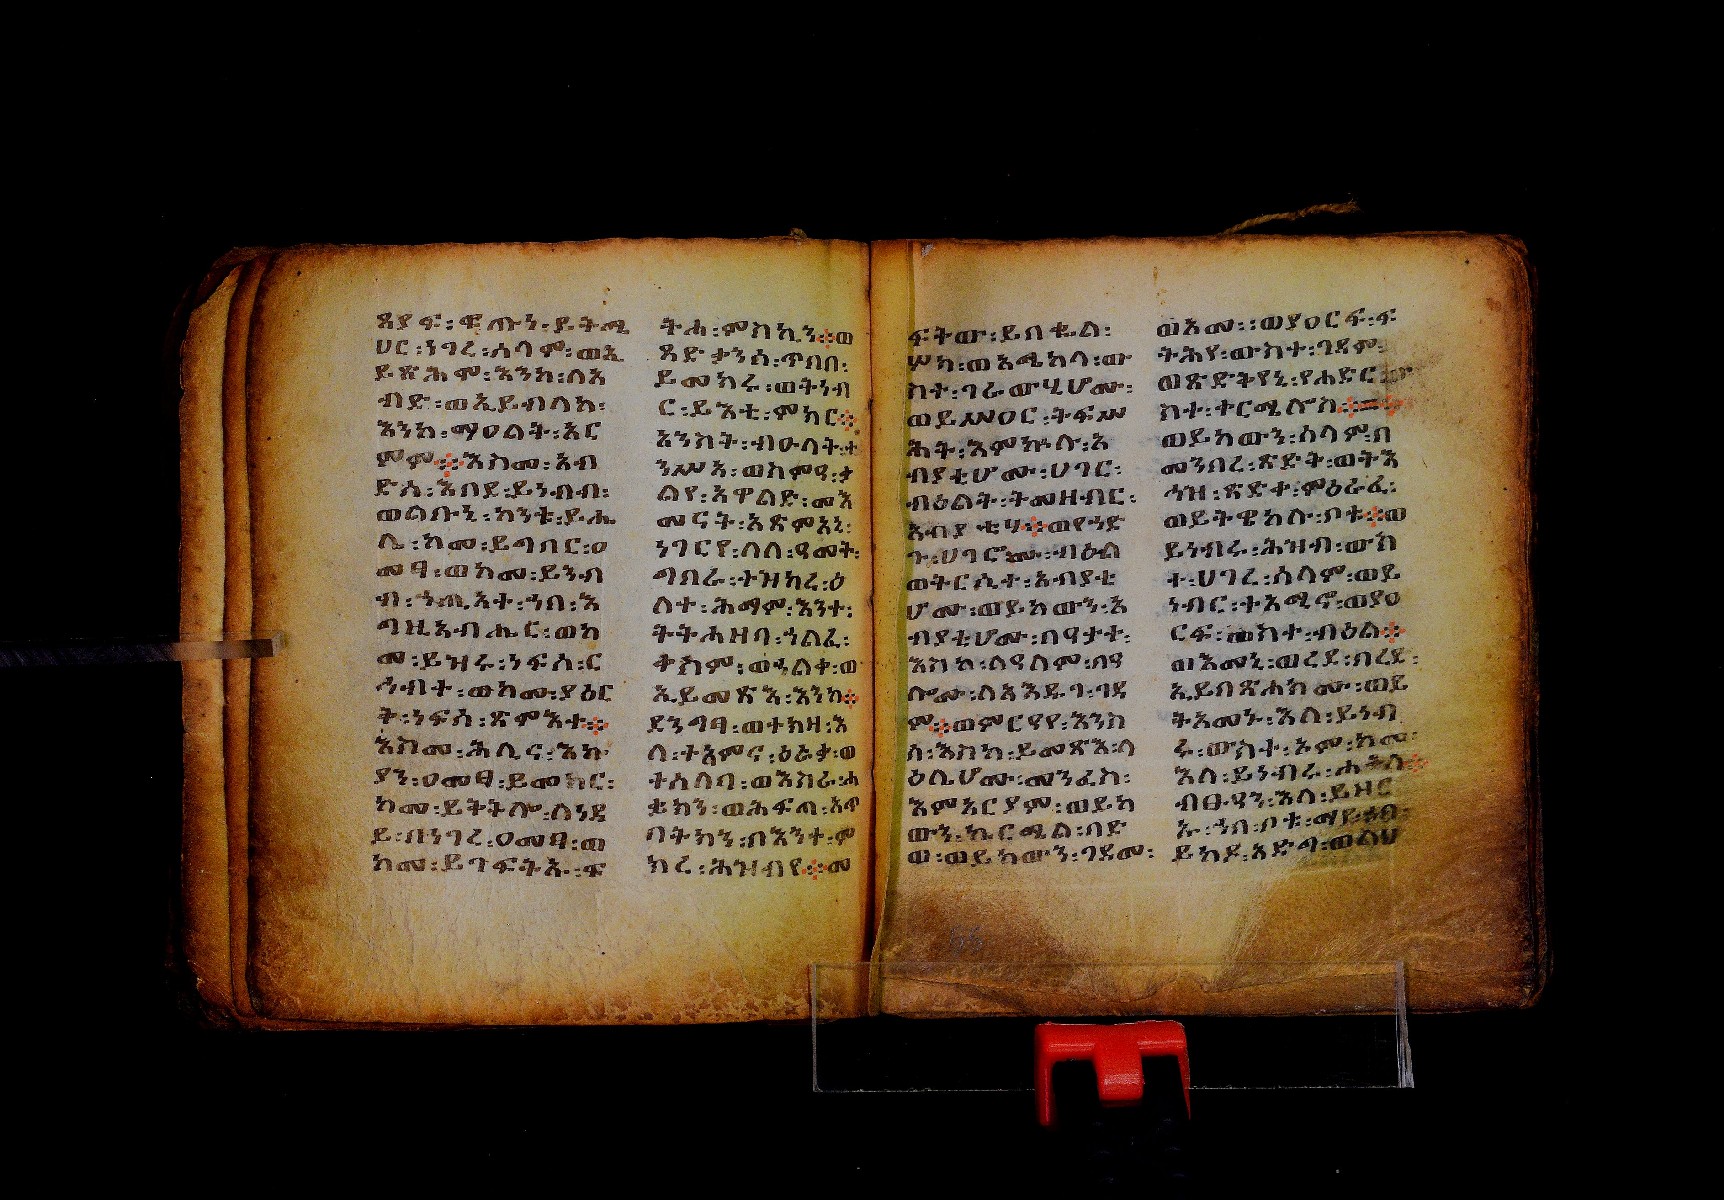 ጸያፍ፡ ቍጡነ፡ ይትሜ
ሀር፡ ነገረ፡ ሰላም፡ ወኢ
ይጽሕም፡ እንከ፡ ለእ
ብድ፡ ወኢይብላከ፡
እንከ፡ ማዐልት፡ አር
ምም። እስመ፡ አብ
ድሰ፡ እበደ፡ ይነብብ፡
ወልቡኒ፡ ከንቱ፡ ይሔ
ሊ፡ ከመ፡ ይግበር፡ ዐ
መፃ፡ ወከመ፡ ይንብ
ብ፡ ኀጢአተ፡ ኀበ፡ እ
ግዚአብሔር፡ ወከ
መ፡ ይዝሩ፡ ነፍሰ፡ ር
ኅብተ፡ ወከመ፡ ያዕር
ት፡ ነፍሰ፡ ጽምእተ።
እስመ፡ ሕሊና፡ እኩ
ያን፡ ዐመፃ፡ ይመክር፡
ከመ፡ ይትትሎ፡ ለነዳ
ይ፡ በነገረ፡ ዐመፃ፡ ወ
ከመ፡ ይገፍትኡ፡ ፍ
ትሐ፡ ምስኪን። ወ
ጻድቃንሰ፡ ጥበበ፡
ይመክሩ፡ ወትነብ
ር፡ ይእቲ፡ ምክር።
አንስት፡ ብዑላት፡ ተ
ንሥኣ፡ ወስምዓ፡ ቃ
ልየ፡ አዋልድ፡ መእ
መናት፡ አጽምአኒ፡
ነገርየ፡ ለለ፡ ዓመት፡
ግበራ፡ ተዝከረ፡ ዕ
ለተ፡ ሕማም፡ እንተ፡
ትትሐዘባ፡ ኀልፈ፡
ቀስም፡ ወኃልቀ፡ ወ
ኢይመጽእ፡ እንከ።
ደንግፃ፡ ወተክዛ፡ እ
ለ፡ ተአምና፡ ዕራቃ፡ ወ
ተሰለባ፡ ወእስራ፡ ሐ
ቌክን፡ ወሕፍጠ፡ አጥ
ባትክን፡ በእንተ፡ ም
ክረ፡ ሕዝብየ። መ
ፍትው፡ ይበቍል፡
ሦክ፡ ወአሜከላ፡ ው
ስተ፡ ገራውሂሆሙ፡
ወይሠዐር፡ ትፍሥ
ሕት፡ እምኵሉ፡ አ
ብያቲሆሙ፡ ሀገር፡
ብዕልት፡ ትመዘብር፡
አብያቲሃ። ወየኀድ
ጉ፡ ሀገሮሙ፡ ብዕል
ወትርሲተ፡ አብያቲ
ሆሙ፡ ወይከውን፡ አ
ብያቲሆሙ፡ በዓታተ፡
እስከ፡ ለዓለም፡ በዓ
ሎሙ፡ ለአእዱገ፡ ገዳ
ም። ወምርዓየ፡ እንስ
ሳ፡ እስከ፡ ይመጽእ፡ ላ
ዕሌሆሙ፡ መንፈስ፡
እምአርያም፡ ወይከ
ውን፡ ኬርሜል፡ በድ
ወ፡ ወይከውን፡ ገደመ፡
ወእመ፡፡ ወያዐርፍ፡ ፍ
ትሕየ፡ ውስተ፡ ገዳም፡
ወጽድቅየኒ፡ የሐድር፡ ው
ስተ፡ ተርሜሎስ።
ወይከውን፡ ሰላም፡ በ
መንበረ፡ ጽድት፡ ወትእ
ኅዝ፡ ጽድቀ፡ ምዕራፈ፡
ወይትዌከሉ፡ ቦቱ። ወ
ይነብሩ፡ ሕዝብ፡ ውስ
ተ፡ ሀገረ፡ ሰላም፡ ወይ
ነብር፡ ተአሚኖ፡ ወያዐ
ርፍ፡ ምስተ፡ ብዕል።
ወእመኒ፡ ወረደ፡ በረድ፡
ኢይበጽሐክሙ፡ ወይ
ትአመኑ፡ እለ፡ ይነብ
ሩ፡ ውስተ፡ ኦም፡ ከመ፡
እለ፡ ይነብሩ፡ ሐቅለ።
ብፁዓን፡ እለ፡ ይዘር
ኡ፡ ኀበ፡ ቦቱ፡ ማይ፡
ይከይዶ፡ አድግ፡ ወልህ